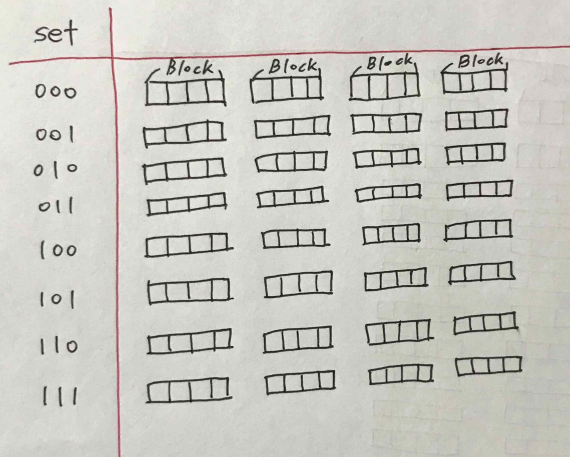 set
Block Block Block Block
000
001
010
011
100
101
110
111